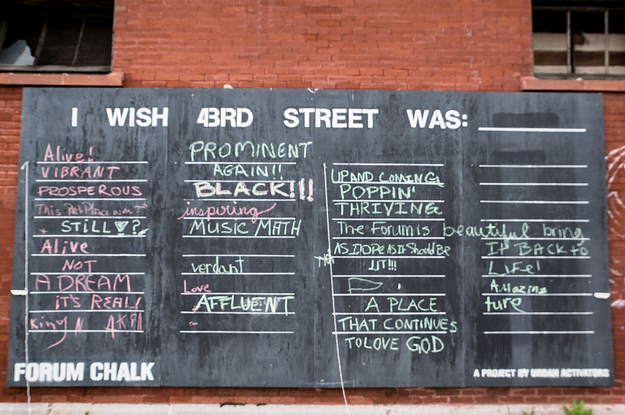 I WISH 43RD STREET WAS:
Alive!
VIBRANT
PROSPEROUS
STILL
Alive
NOT
A DREAM
iT'S REAL!
PROMINENT
AGAIN!!
BLACK!!!
inspiring
MUSIC MATH
verdant
Love
AFFLUENT
UP AND COMING
POPPIN'
THRIVING
The Forum is beautiful bring
AS DOPE AS IT Should Be
LIT!!!
A PLACE
THAT CONTINUES
TO LOVE GOD
IT BACK to
Life!
AMazing
ture
FORUM CHALK
A PROJECT BY URBAN ACTIVATORS